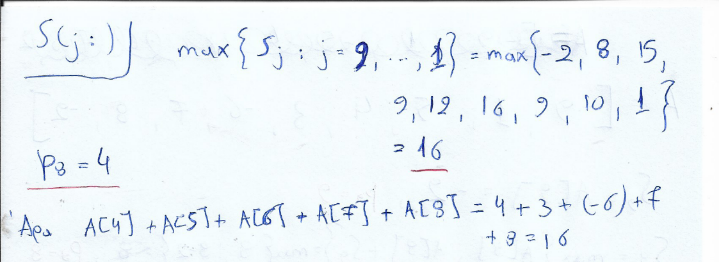 S(j:)
max{Sj : j=9, ..., 1} = max{-2, 8, 15,
9, 12, 16, 9, 10, 1}
= 16
p8 = 4
Άρα A[4] + A[5] + A[6] + A[7] + A[8] = 4 + 3 + (-6) + 7
+ 8 = 16